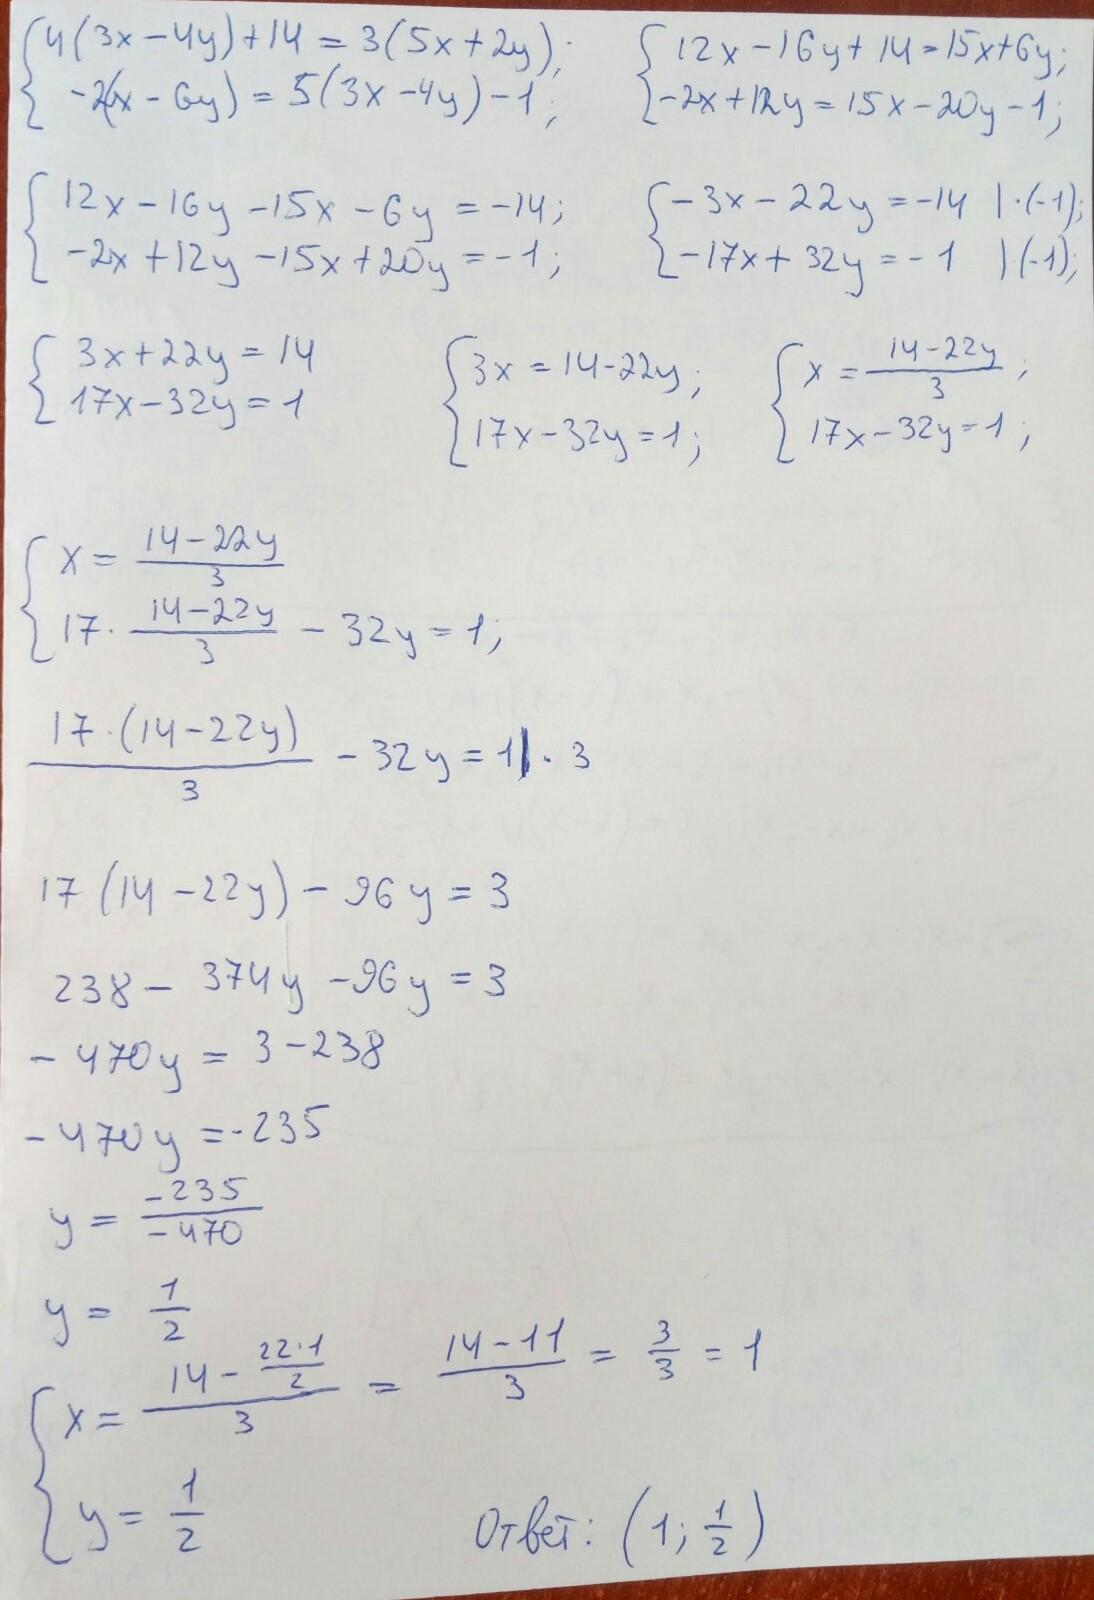 { 4(3x-4y)+14 = 3(5x+2y);
-2(x-6y) = 5(3x-4y)-1;
{ 12x-16y+14=15x+6y;
-2x+12y=15x-20y-1;
{ 12x-16y-15x-6y=-14;
-2x+12y-15x+20y=-1;
{ -3x-22y=-14 |·(-1);
-17x+32y=-1 |·(-1);
{ 3x+22y=14
17x-32y=1
{ 3x=14-22y;
17x-32y=1;
{ x = \frac{14-22y}{3};
17x-32y=1;
{ x = \frac{14-22y}{3}
17·\frac{14-22y}{3} - 32y = 1;
\frac{17·(14-22y)}{3} - 32y = 1|·3
17(14-22y)-96y=3
238-374y-96y=3
-470y=3-238
-470y=-235
y = \frac{-235}{-470}
y = \frac{1}{2}
{ x = \frac{14-\frac{22·1}{2}}{3} = \frac{14-11}{3} = \frac{3}{3} = 1
y = \frac{1}{2}
Ответ: (1; \frac{1}{2})